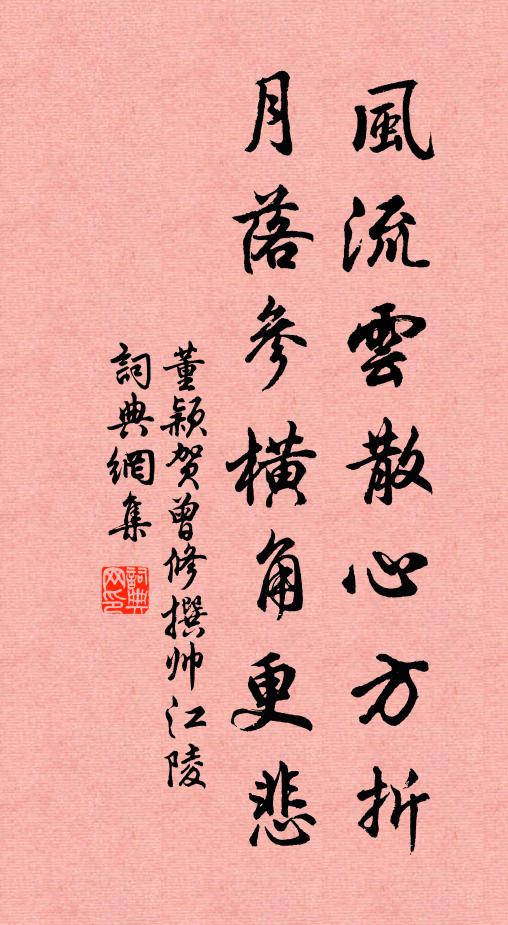 風流雲散心方折
月落參橫角更悲
董颖贺曾修撰帅江陵
詞典網集
詞典网印